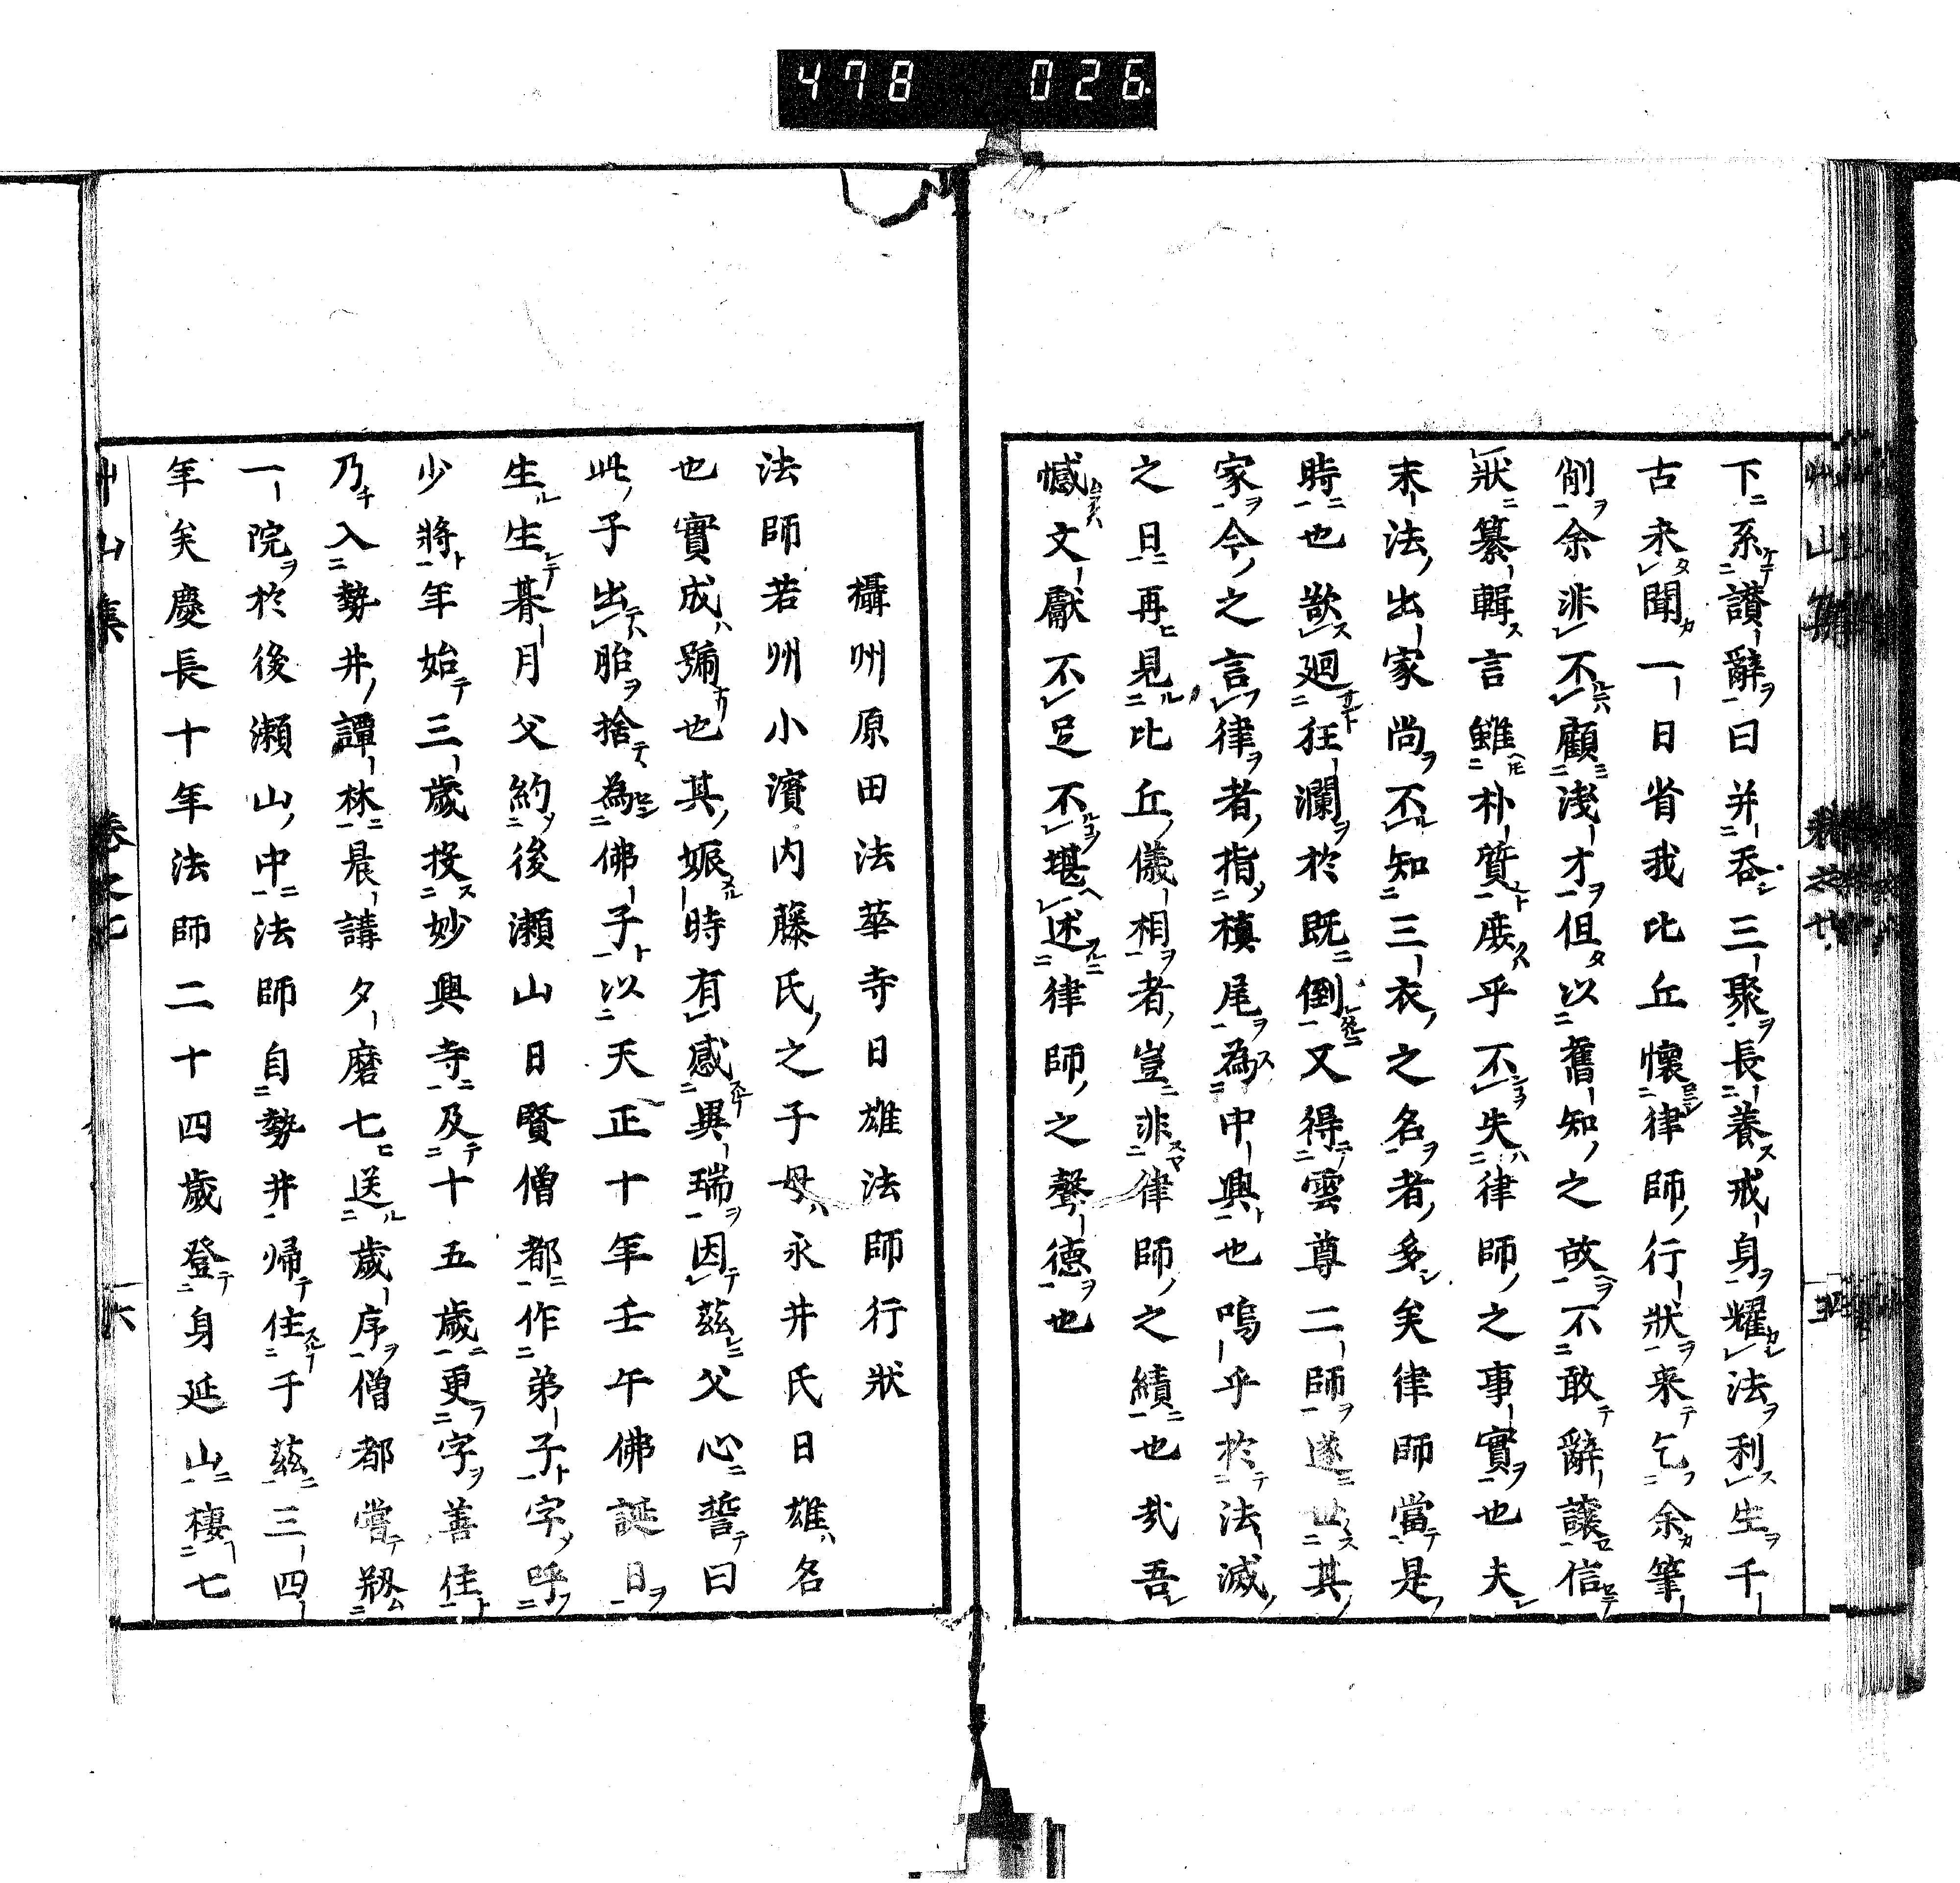 478 026
下系讃辭曰并呑三聚長養戒身耀法利生千
古未聞一日省我比丘懷律師行狀来乞余筆
削余非不顧淺才但以舊知之故不敢辭讓信
狀纂輯言雖朴質庶乎不失律師之事實也夫
末法出家尚不知三衣之名者多矣律師當是
時也欲廻狂瀾於既倒又得雲尊二師遂其
家今之言律者指槙尾為中興也嗚乎於法滅
之日再見比丘儀相者豈非律師之績也哉吾
憾文獻不足不堪述律師之聲德也
攝州原田法華寺日雄法師行狀
法師若州小濱内藤氏之子母永井氏日雄名
也實成號也其娠時有感異瑞因茲父心誓曰
此子出胎捨為佛子以天正十年壬午佛誕日
生生朞月父約後瀬山日賢僧都作弟子字呼
少將年始三歲投妙興寺及十五歲更字善住
乃入勢井譚林晨講夕磨七送歲序僧都嘗剏
一院於後瀬山中法師自勢井帰住于茲三四
年矣慶長十年法師二十四歲登身延山棲七
艸山集 卷之七 六